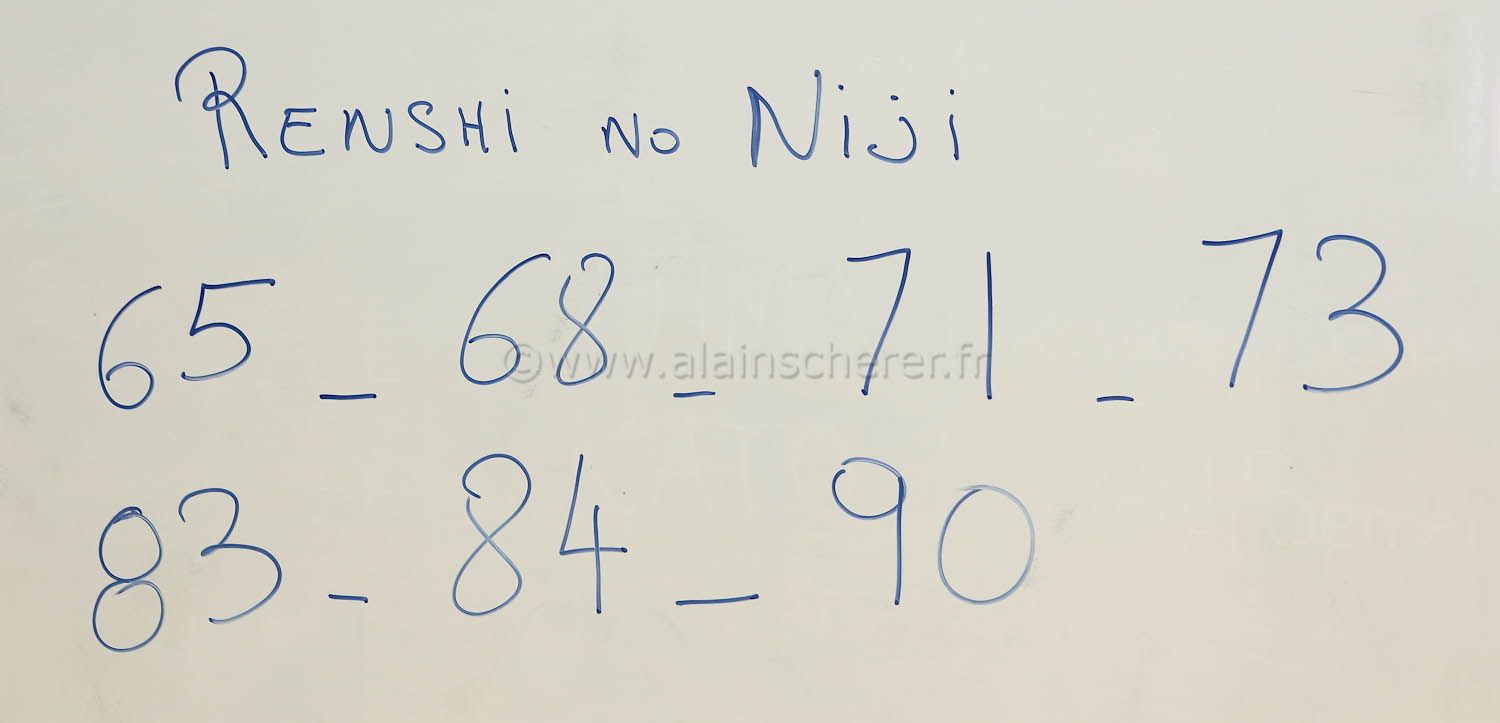 RENSHi NO Niji
65 _ 68 _ 71 _ 73
©www.alainscherer.fr
83 _ 84 _ 90